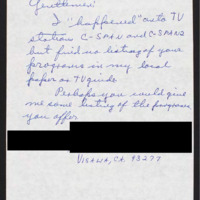 Gentlemen:
I "happened" onto TV
station C-SPAN and C-SPAN2
but find no listing of your
programs in my local
paper or TV guide.
Perhaps you could give
me some listing of the programs
you offer.
VISALIA, CA. 93277